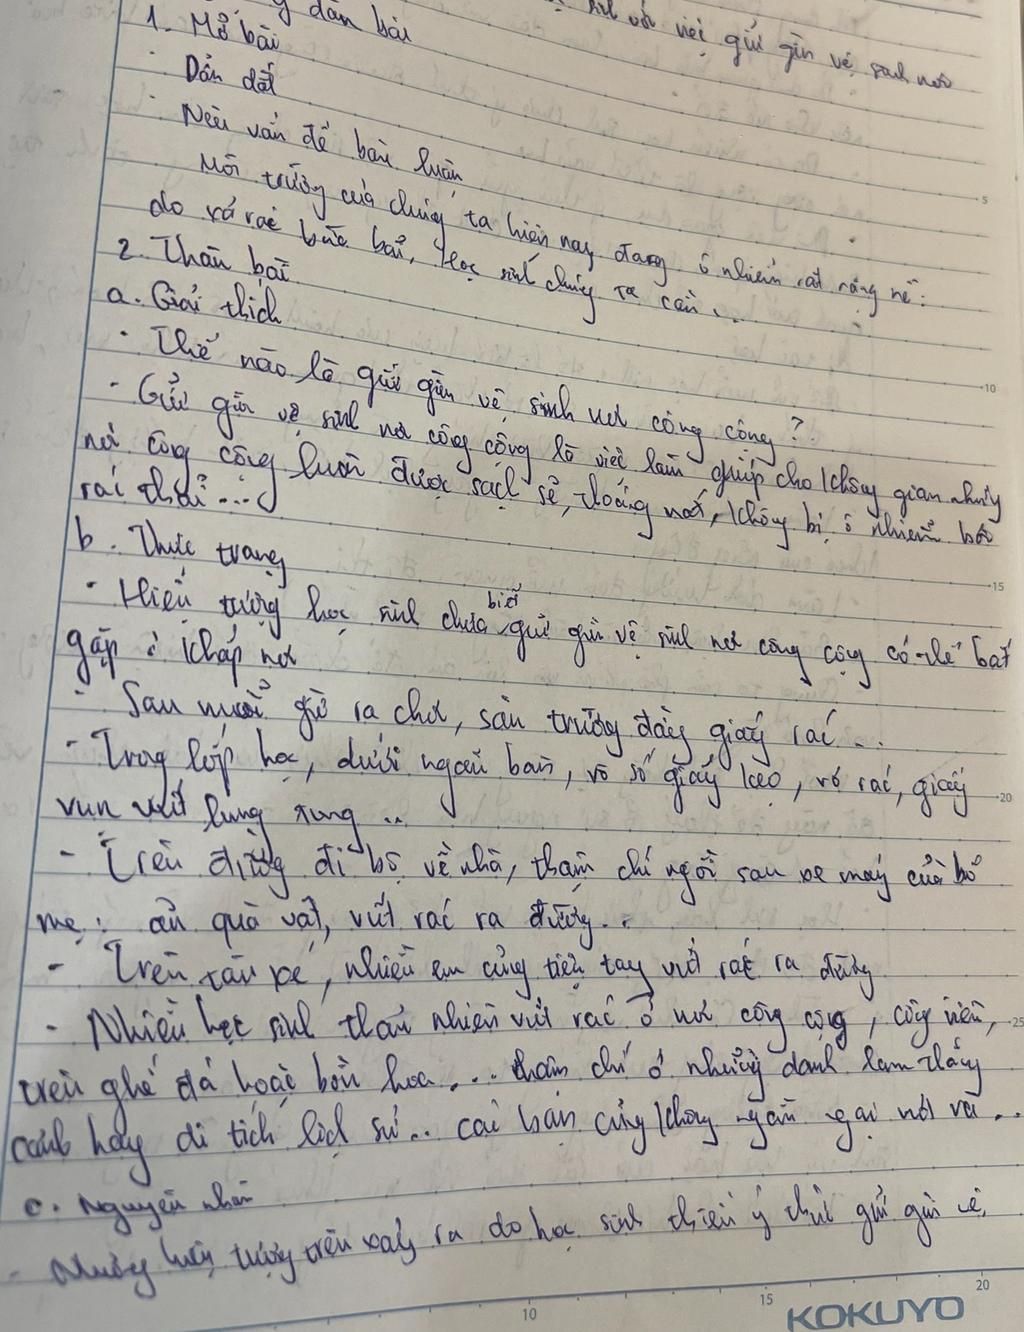 dàn bài
sinh với việc giữ gìn vệ sinh nơi
1. Mở bài
- Dẫn dắt
- Nêu vấn đề bàn luận
Môi trường của chúng ta hiện nay đang ô nhiễm rất nặng nề:
do xả rác bừa bãi, Học sinh chúng ta cần...
2. Thân bài
a. Giải thích
- Thế nào là giữ gìn vệ sinh nơi công cộng?
- Giữ gìn vệ sinh nơi công cộng là việc làm giúp cho không gian những
nơi công cộng luôn được sạch sẽ, thoáng mát, không bị ô nhiễm bởi
rác thải...
b. Thực trạng
- Hiện tượng học sinh chưa biết giữ gìn vệ sinh nơi công cộng có thể bắt
gặp ở khắp nơi
- Sau mỗi giờ ra chơi, sân trường đầy giấy rác...
- Trong lớp học, dưới ngăn bàn, vô số giấy kẹo, vỏ rác, giấy
vụn vứt lung tung...
- Trên đường đi bộ về nhà, thậm chí ngồi sau xe máy của bố
mẹ: ăn quà vặt, vứt rác ra đường..
- Trên tàu xe, nhiều em cũng tiện tay vứt rác ra đường
- Nhiều học sinh thản nhiên vứt rác ở nơi công cộng, công viên,
trên ghế đá hoặc bồn hoa... thậm chí ở những danh lam thắng
cảnh hay di tích lịch sử.. các bạn cũng không ngần ngại vứt rác..
c. Nguyên nhân
- Những hiện tượng trên xảy ra do học sinh thiếu ý thức giữ gìn vệ
10 15 20
KOKUYO
5
10
15
20
25